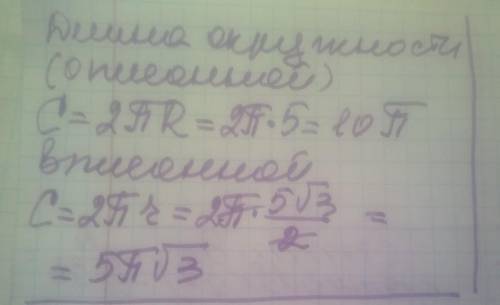 Длина окружности
(описанной)
C = 2πR = 2π·5 = 10π
вписанной
C = 2πr = 2π · 5√3/2 =
= 5π√3